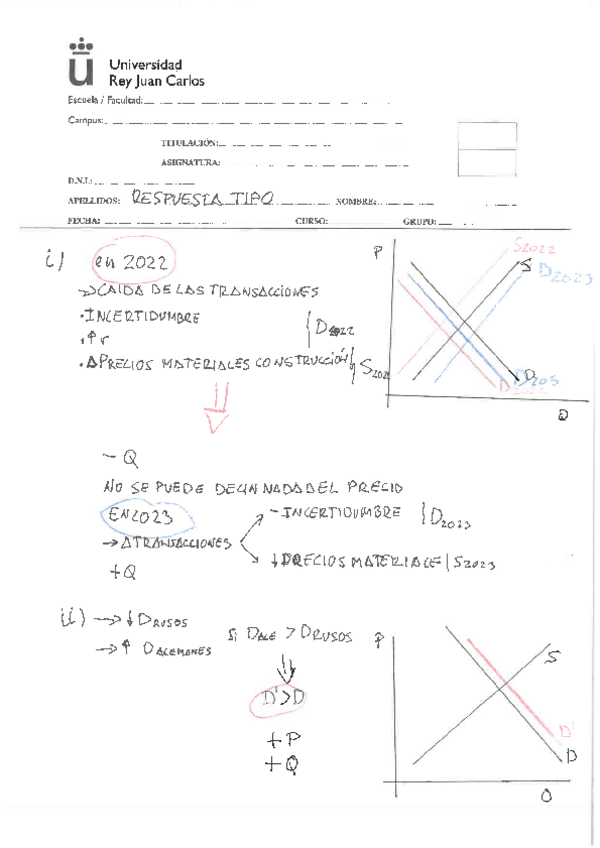 Universidad
Rey Juan Carlos
Escuela / Facultad:
Campus:
TITULACIÓN:
ASIGNATURA:
D.N.I.:
APELLIDOS: RESPUESTA TIPO NOMBRE:
FECHA: CURSO: GRUPO:
i) en 2022
→ CAIDA DE LAS TRANSACCIONES
· INCERTIDUMBRE
· ↑ r
D2022
· Δ PRECIOS MATERIALES CONSTRUCCIÓN
P
S2022
S
D2023
D
D203
D2022
Q
- Q
NO SE PUEDE DECIR NADA DEL PRECIO
EN 2023
→ Δ TRANSACCIONES
+ Q
- INCERTIDUMBRE D2023
↓ PRECIOS MATERIALE S2023
ii) → ↓ DRUSOS
→ ↑ DALEMANES
Si DALE > DRUSOS
D' > D
+ P
+ Q
P
S
D'
D
Q